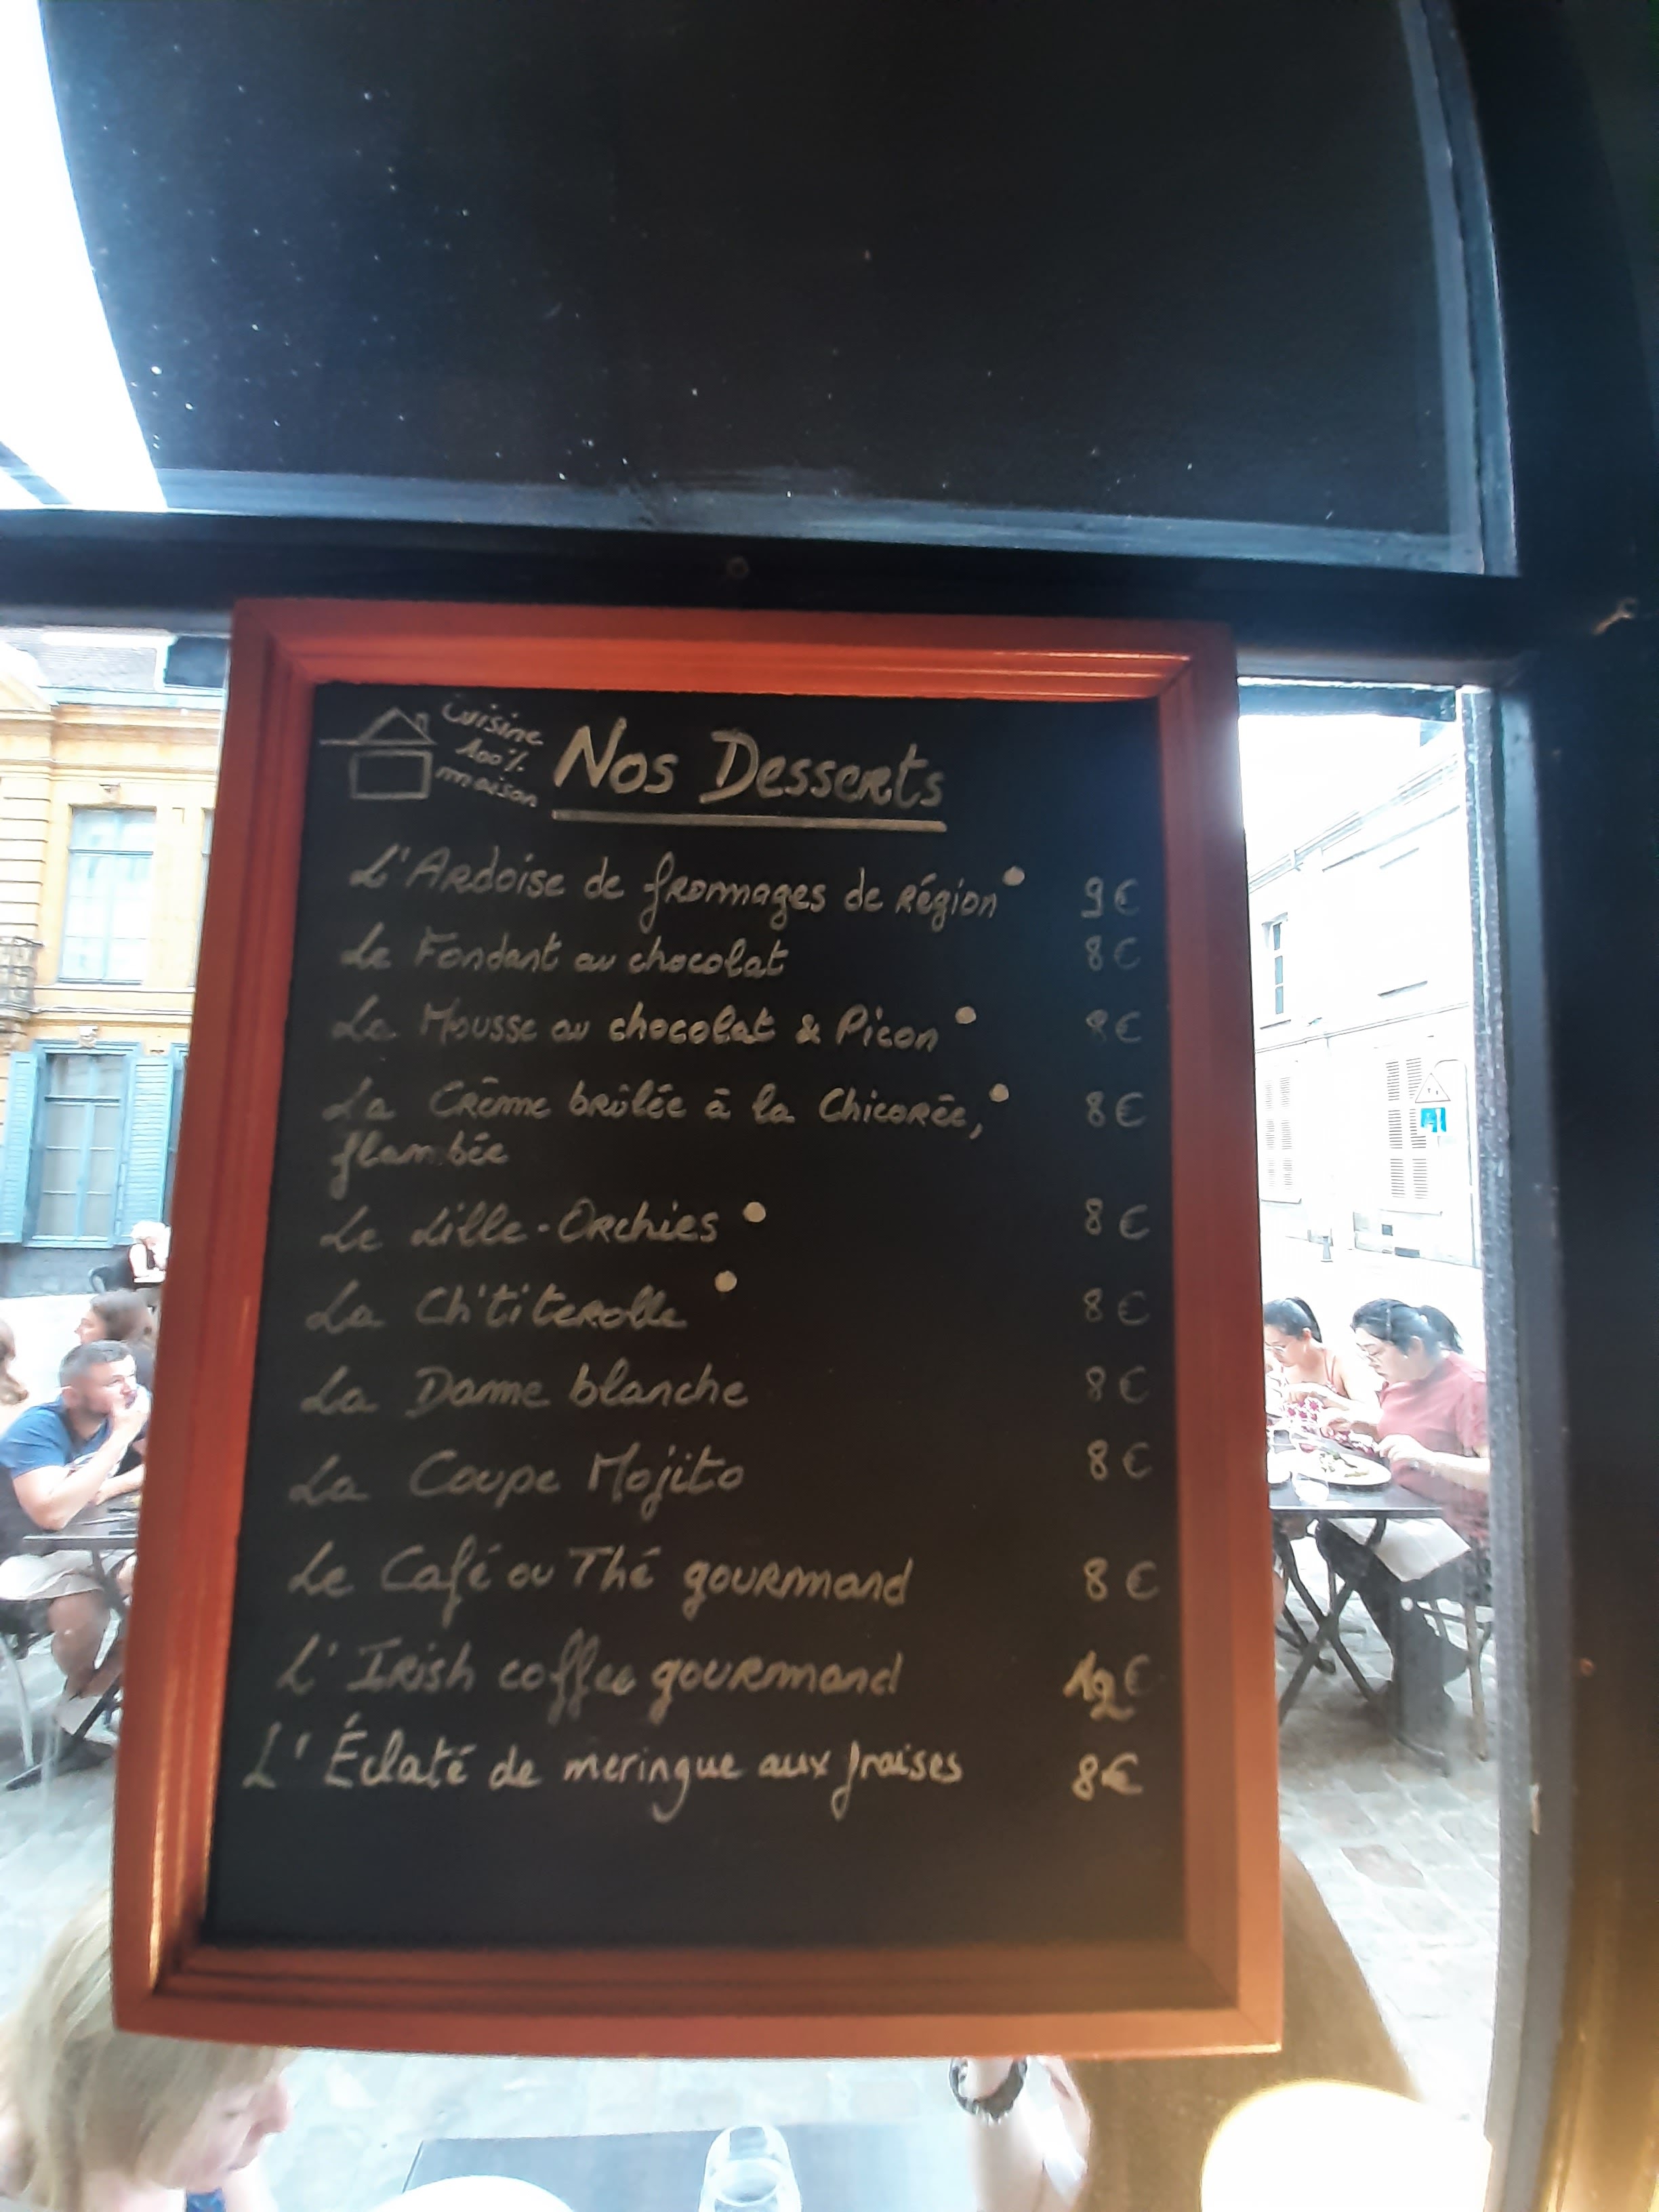 Cuisine
100%
maison
Nos Desserts
L'Ardoise de fromages de région • 9€
Le Fondant au chocolat 8€
La Mousse au chocolat & Picon • 8€
La Crème brûlée à la Chicorée, • 8€
flambée
Le Lille-Orchies • 8€
La Ch'titerolle • 8€
La Dame blanche 8€
La Coupe Mojito 8€
Le Café ou Thé gourmand 8€
L'Irish coffee gourmand 12€
L'Éclaté de meringue aux fraises 8€